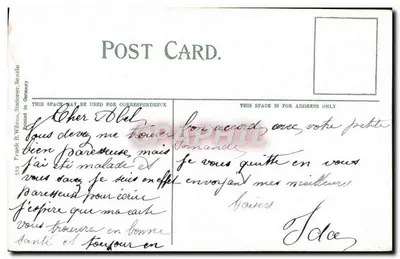 POST CARD.
THIS SPACE MAY BE USED FOR CORRESPONDENCE
THIS SPACE IS FOR ADDRESS ONLY
Printed in Germany
Cher Abel
Vous devez me trouver
bien paresseuse mais
j'ai été malade et
vous savez je suis en effet
paresseuse pour écrire
j'espire que ma carte
vous trouvera en bonne
santé et toujour en
bon accord avec votre petite
je vous quitte en vous
envoyant mes meilleures
baisers
Ida